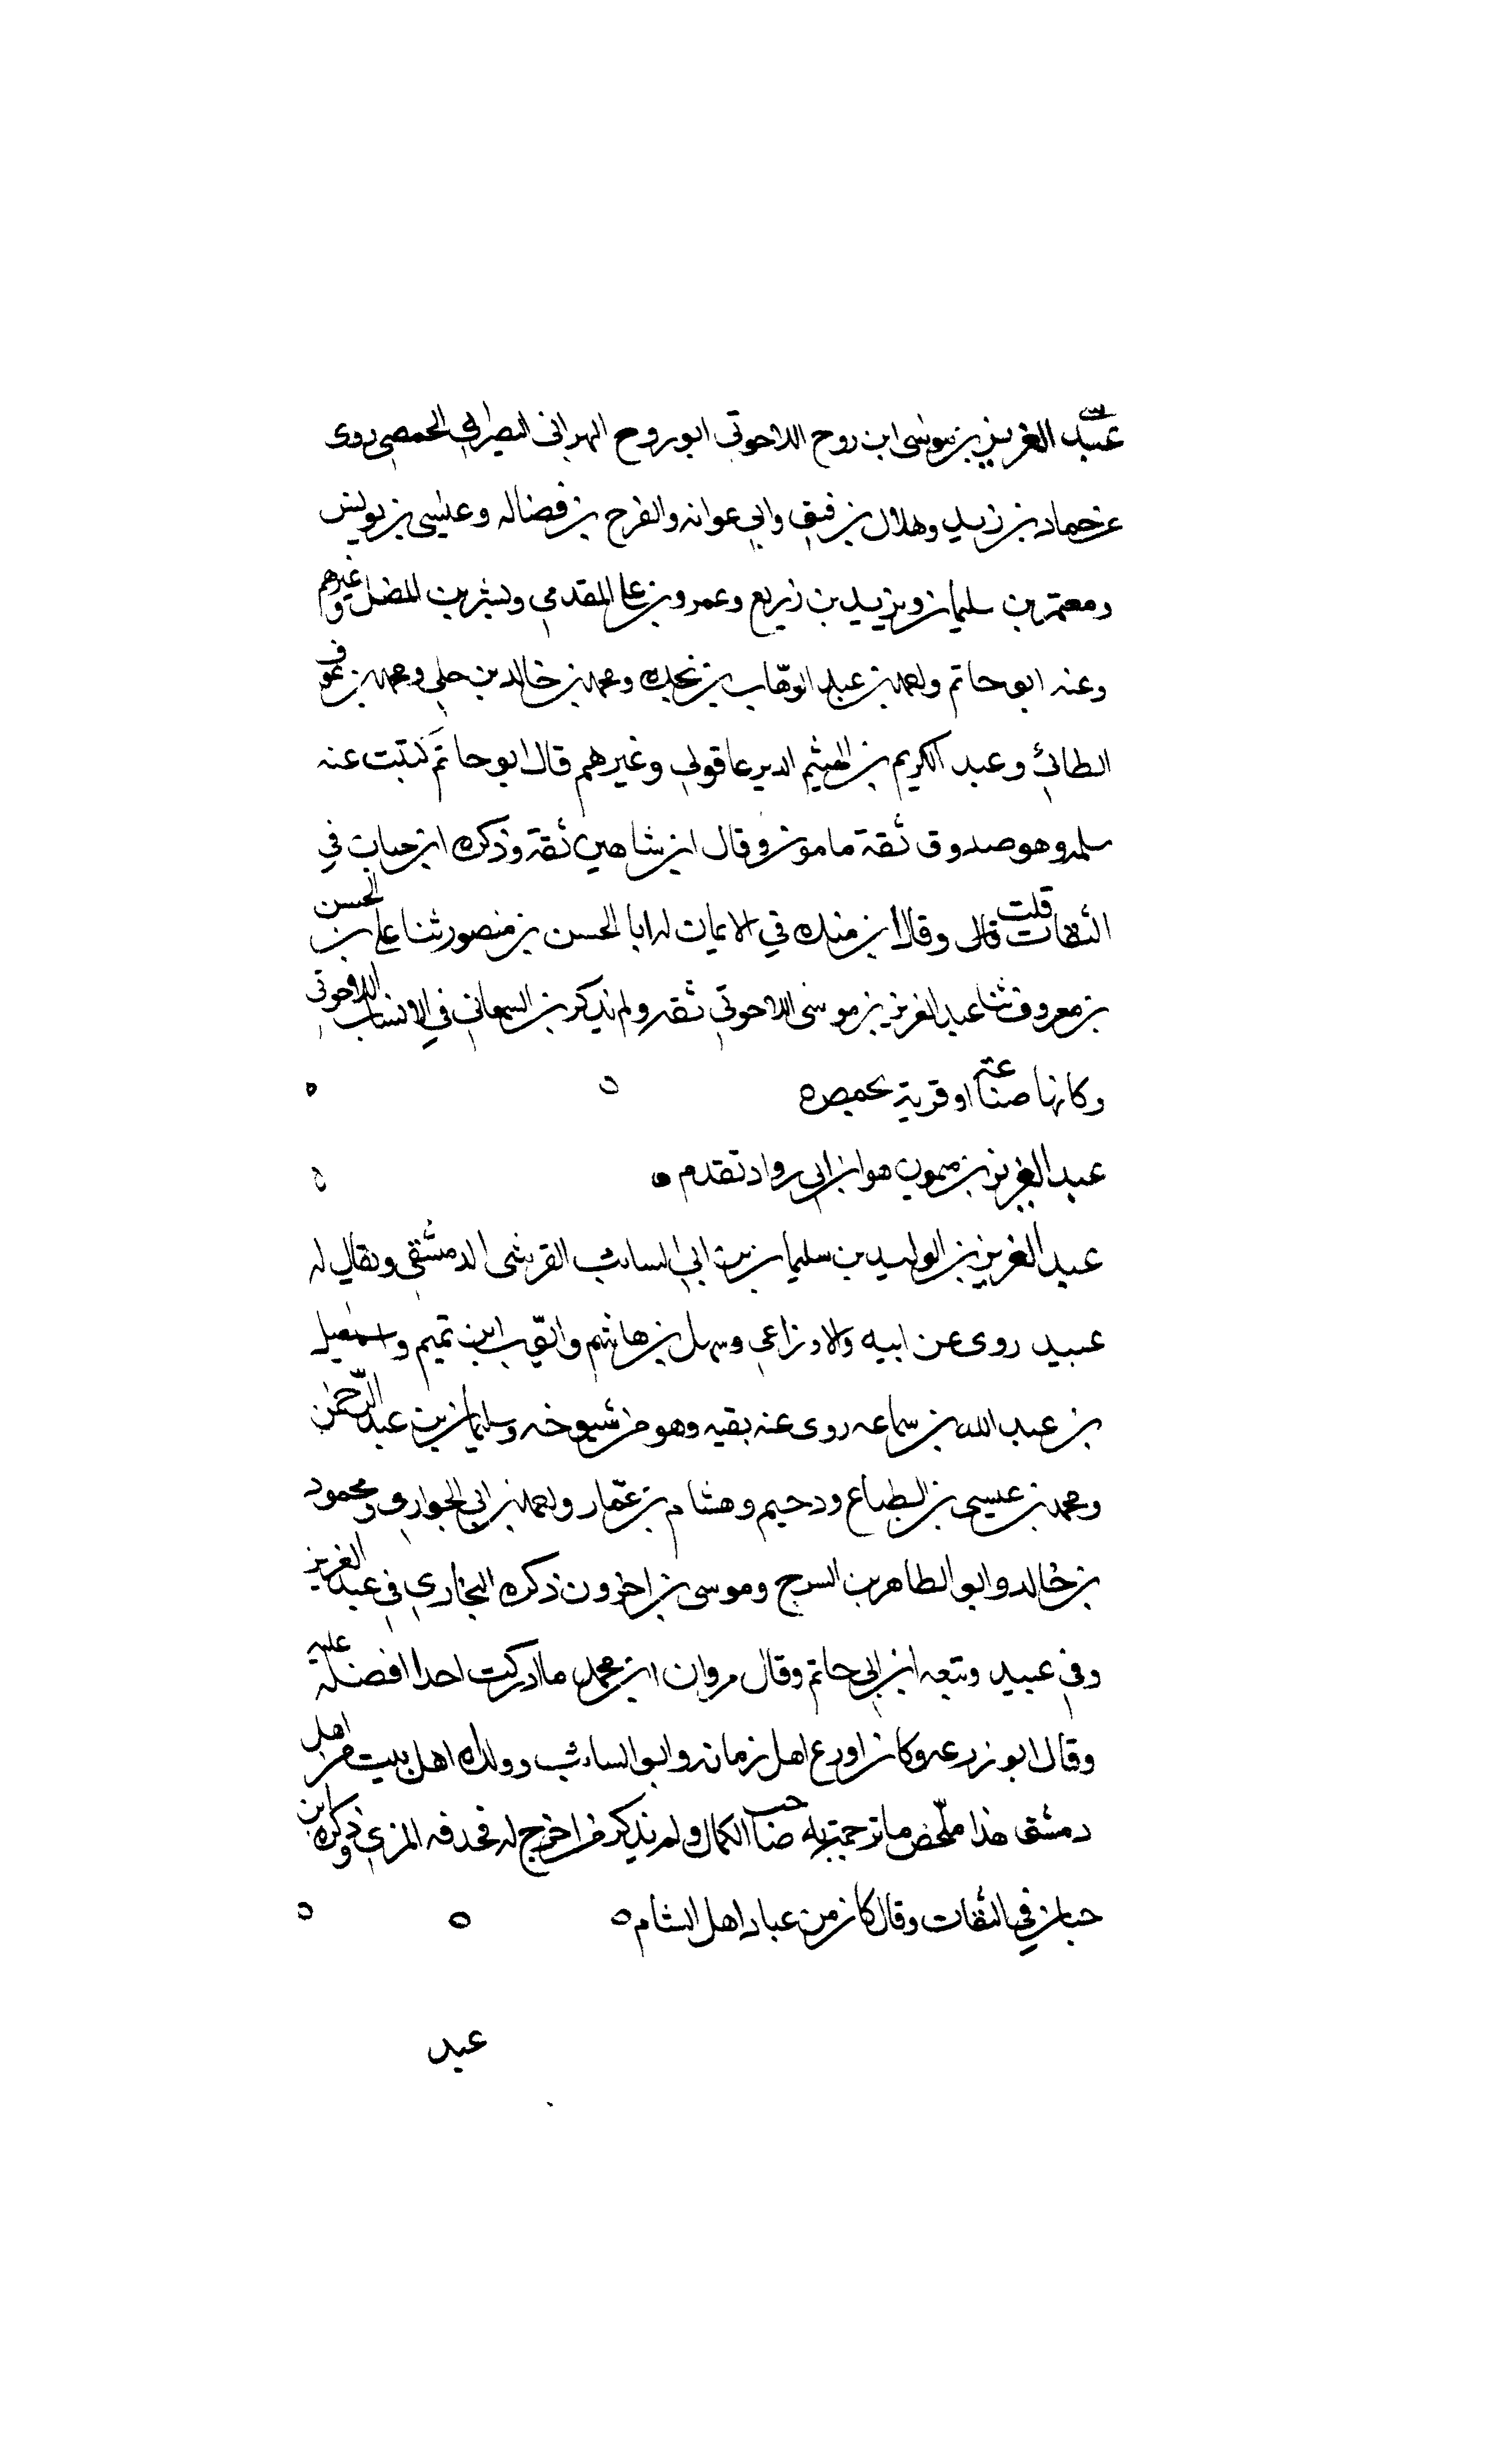 عبد العزيز بن موسى ابن روح اللاحوني ابو روح البهراني البصراني الحمصي روى
عن حماد بن زيد وهلال بن فيق وابي عوانه والفرج بن فضاله وعيسى بن يونس
ومعتمر بن سليمان ويزيد بن زريع وعمرو بن علي المقدمي وبشر بن المفضل وغيرهم
وعنه ابو حاتم واحمد بن عبد الوهاب بن نجده ومحمد بن خالد بن خلي ومحمد بن عوف
الطائي وعبد الكريم بن الهيثم الديرعاقولي وغيرهم قال ابو حاتم كتبت عنه
بسلميه وهو صدوق ثقة مامون وقال ابن شاهين ثقة وذكره ابن حبان في
الثقات قلت قال وقال ابن منده في الايمان له ابا الحسن بن منصور ثنا علي بن الحسن
بن معروف ثنا عبد العزيز بن موسى اللاحوني ثقه ولم يذكر بن السمعاني في الانساب اللاحوني
وكانها صناعته او قرية بحمص ه
عبد العزيز بن ميمون هو ابن ابي رواد تقدم ه
عبد العزيز بن الوليد بن سليمان بن ابي السائب القرشي الدمشقي ويقال له
عبيد روى عن ابيه والاوزاعي وسهل بن هاشم وايوب ابن تميم واسمعيل
بن عبد الله بن سماعه روى عنه بقيه وهو من شيوخه وسليمان بن عبد الرحمن
ومحمد بن عيسى بن الطباع ودحيم وهشام بن عمار واحمد بن ابي الحواري ومحمود
بن خالد وابو الطاهر بن السرح وموسى بن اخرون ذكره البخاري في عبد العزيز
وفي عبيد وتبعه ابن ابي حاتم وقال مروان ابن محمد ما ادركت احدا افضله عليه
وقال ابو زرعه وكان اورع اهل زمانه وابو السائب وولداه اهل بيت من اهل
دمشق هذا ملخص ما ترجمته به صاحب الكمال ولم يذكر من اخرج له فحذفه المزي وذكره ابن
حبان في الثقات وقال كان من عباد اهل الشام ه
عبد